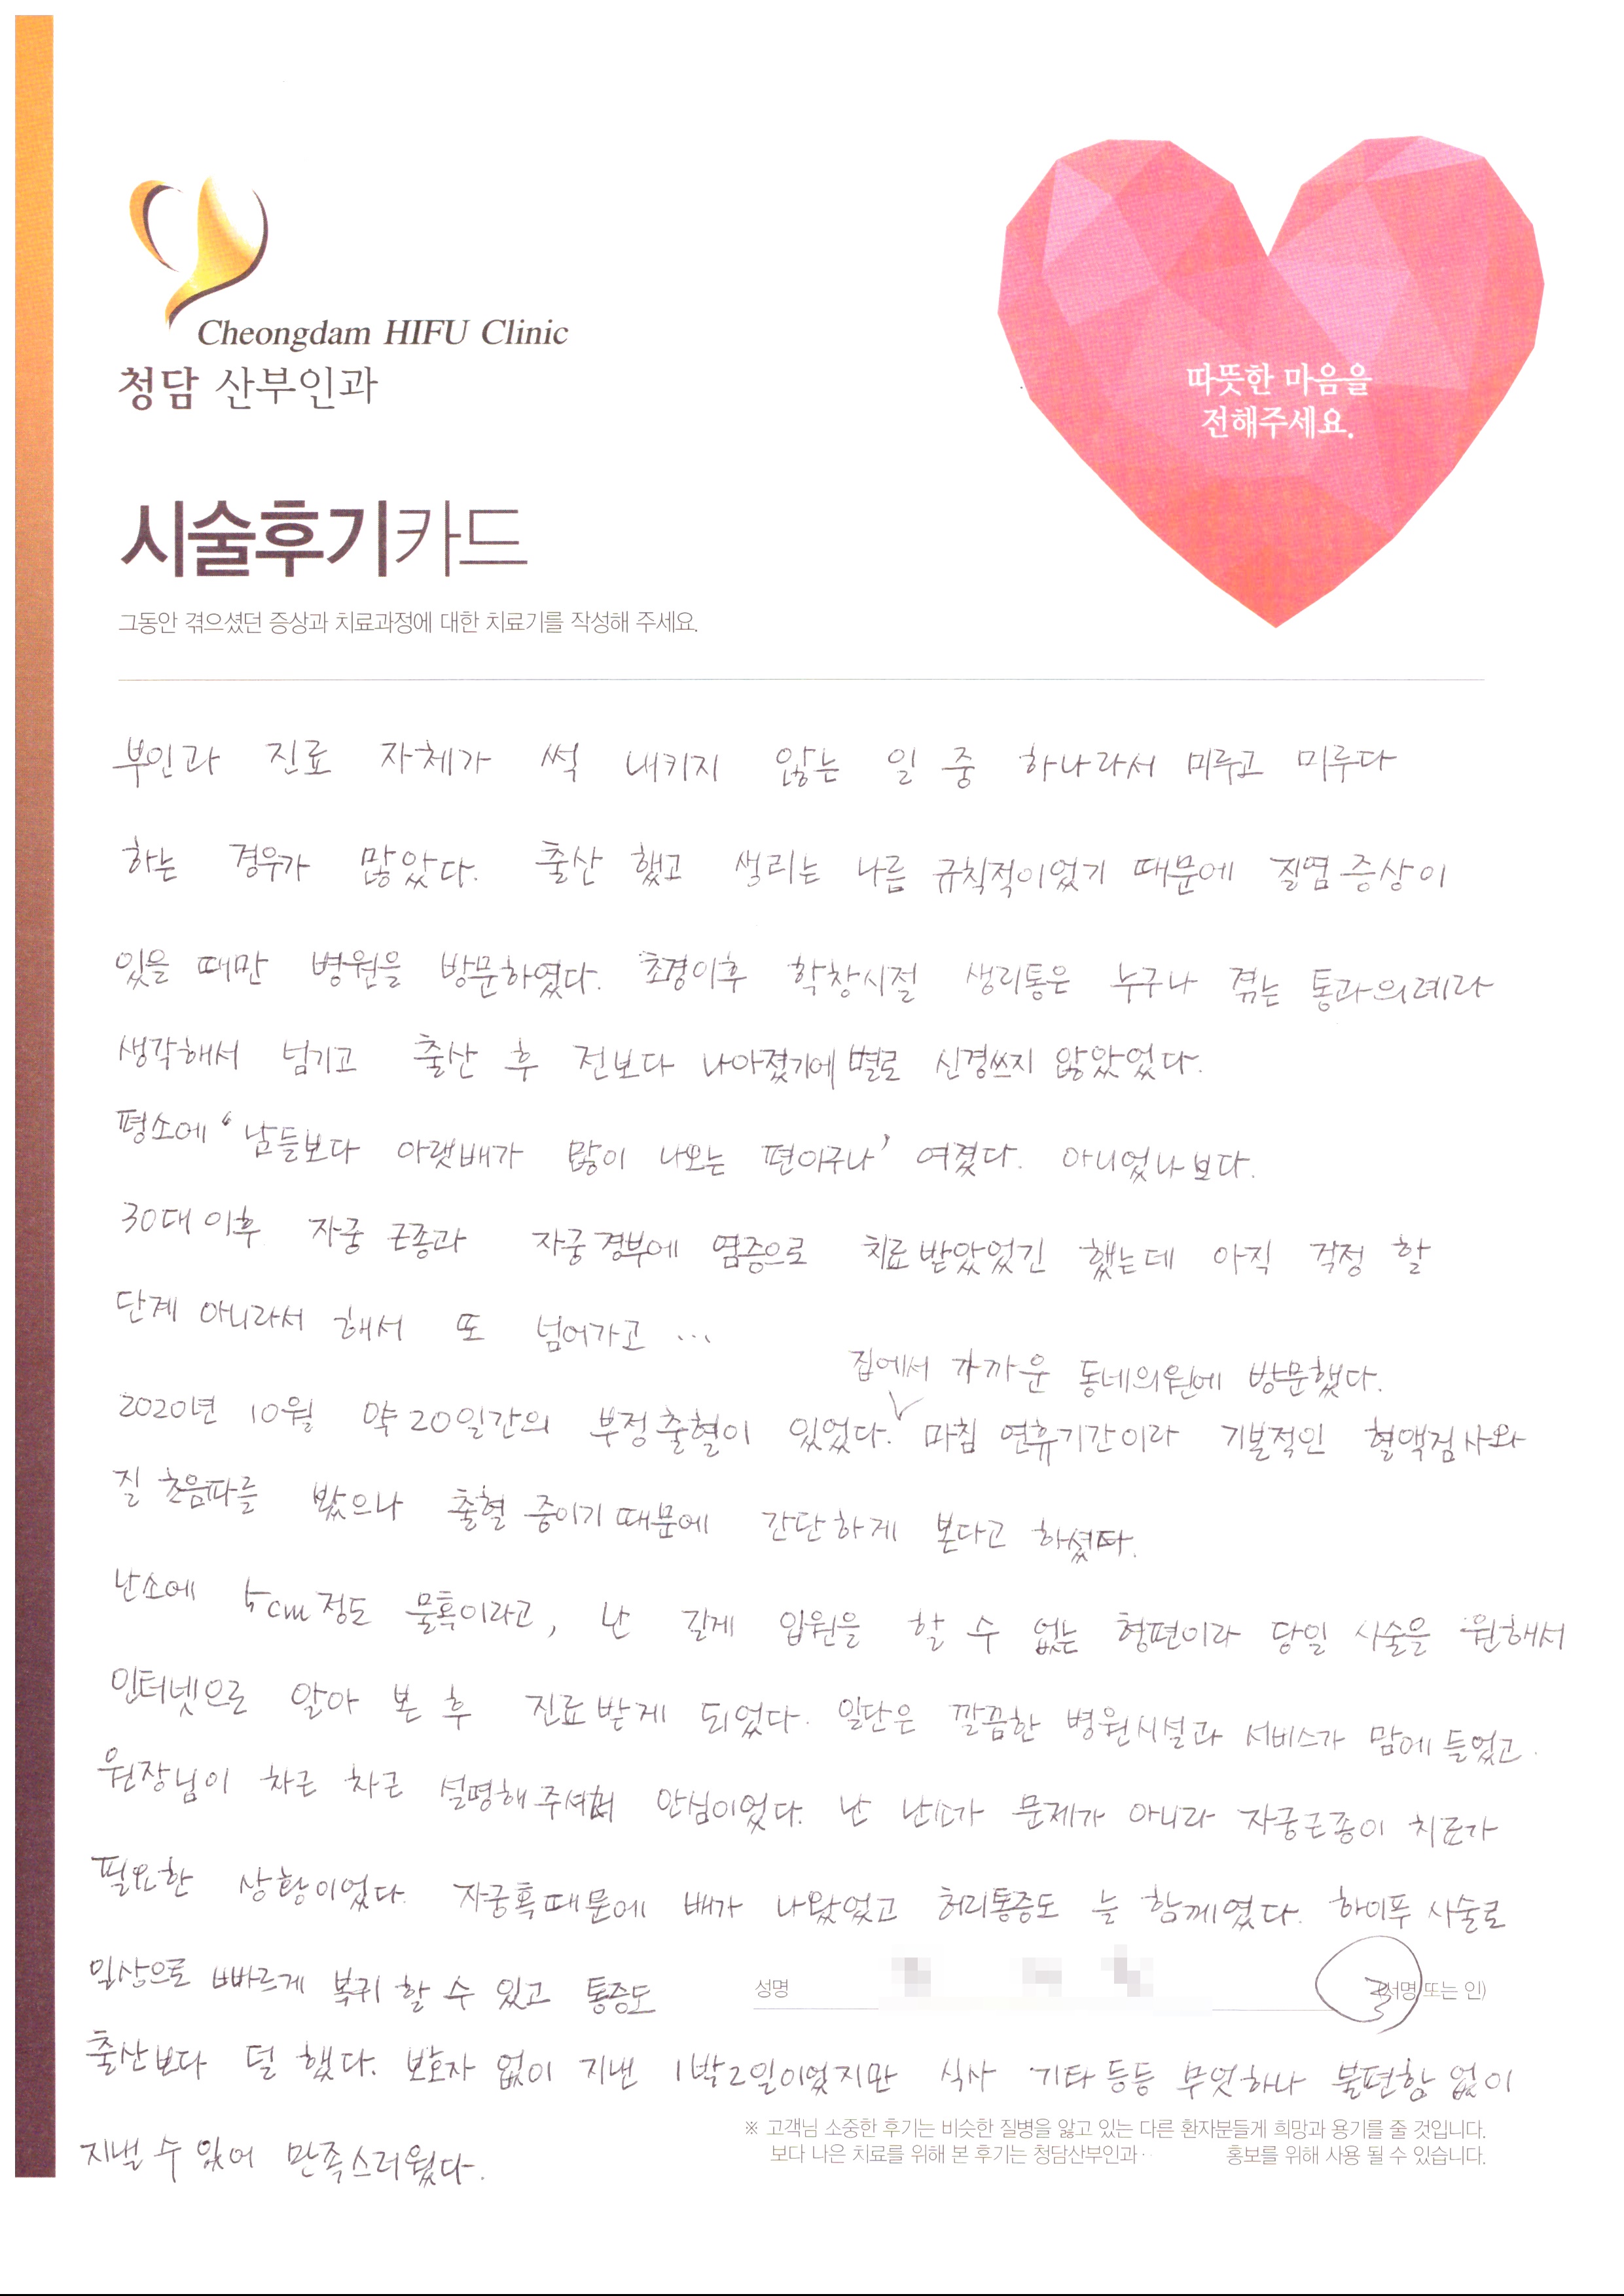 Cheongdam HIFU Clinic
청담 산부인과
따뜻한 마음을
전해주세요.
시술후기카드
그동안 겪으셨던 증상과 치료과정에 대한 치료기를 작성해 주세요.
부인과 진료 자체가 썩 내키지 않는 일 중 하나라서 미루고 미루다
하는 경우가 많았다. 출산 했고 생리는 나름 규칙적이었기 때문에 질염 증상이
있을 때만 병원을 방문하였다. 초경이후 학창시절 생리통은 누구나 겪는 통과의례라
생각해서 넘기고 출산 후 전보다 나아졌기에 별로 신경쓰지 않았었다.
평소에 '남들보다 아랫배가 많이 나오는 편이구나' 여겼다. 아니었나보다.
30대 이후 자궁 근종과 자궁경부에 염증으로 치료받았었긴 했는데 아직 걱정 할
단계 아니라서 해서 또 넘어가고 ...
집에서 가까운 동네의원에 방문했다.
2020년 10월 약 20일간의 부정출혈이 있었다. 마침 연휴기간이라 기본적인 혈액검사와
질 초음파를 봤으나 출혈 중이기 때문에 간단하게 본다고 하셨다.
난소에 5cm정도 물혹이라고, 난 길게 입원을 할 수 없는 형편이라 당일 시술을 원해서
인터넷으로 알아 본 후 진료받게 되었다. 일단은 깔끔한 병원시설과 서비스가 맘에 들었고
원장님이 차근 차근 설명해주셔서 안심이었다. 난 난소가 문제가 아니라 자궁근종이 치료가
필요한 상황이었다. 자궁혹때문에 배가 나왔었고 허리통증도 늘 함께였다. 하이푸 시술로
일상으로 빠르게 복귀 할 수 있고 통증도
성명 (서명 또는 인)
출산보다 덜 했다. 보호자 없이 지낸 1박2일이었지만 식사 기타등등 무엇하나 불편함 없이
※ 고객님 소중한 후기는 비슷한 질병을 앓고 있는 다른 환자분들게 희망과 용기를 줄 것입니다.
보다 나은 치료를 위해 본 후기는 청담산부인과 홍보를 위해 사용 될 수 있습니다.
지낼 수 있어 만족스러웠다.